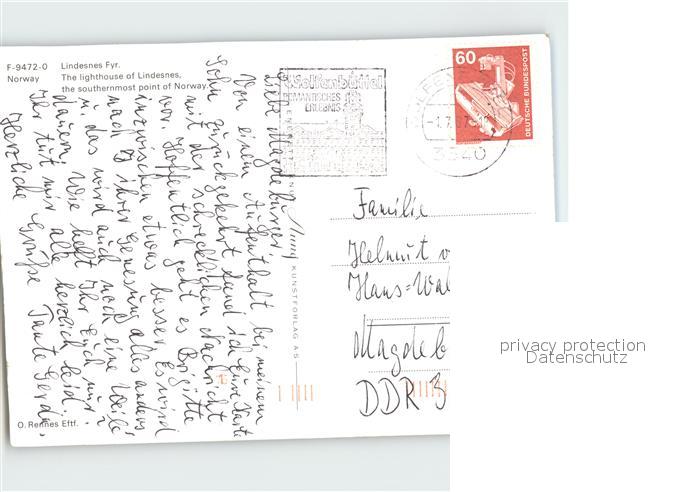 F-9472-0
Norway
Lindesnes Fyr.
The lighthouse of Lindesnes,
the southernmost point of Norway.
Wolfenbüttel
ROMANTISCHES
ERLEBNIS
3340
60
DEUTSCHE BUNDESPOST
Liebe Magdeburger!
Von einem Aufenthalt bei meinem
Sohn zurückgekehrt fand ich Eure Karte
mit der schrecklichen Nachricht
vor. Hoffentlich geht es Brigitte
inzwischen etwas besser. Es wird
nach ihrer Genesung alles anders
u. das wird auch noch eine Weile
dauern. Wie helft Ihr Euch nur.
Ihr tut mir alle herzlich leid.
Herzliche Grüße Tante Gerda
KUNSTFORLAG A·S
Familie
Helmut
Hans=Wal
Magdeb
DDR 3
O. Rennes Eftf.
privacy protection
Datenschutz